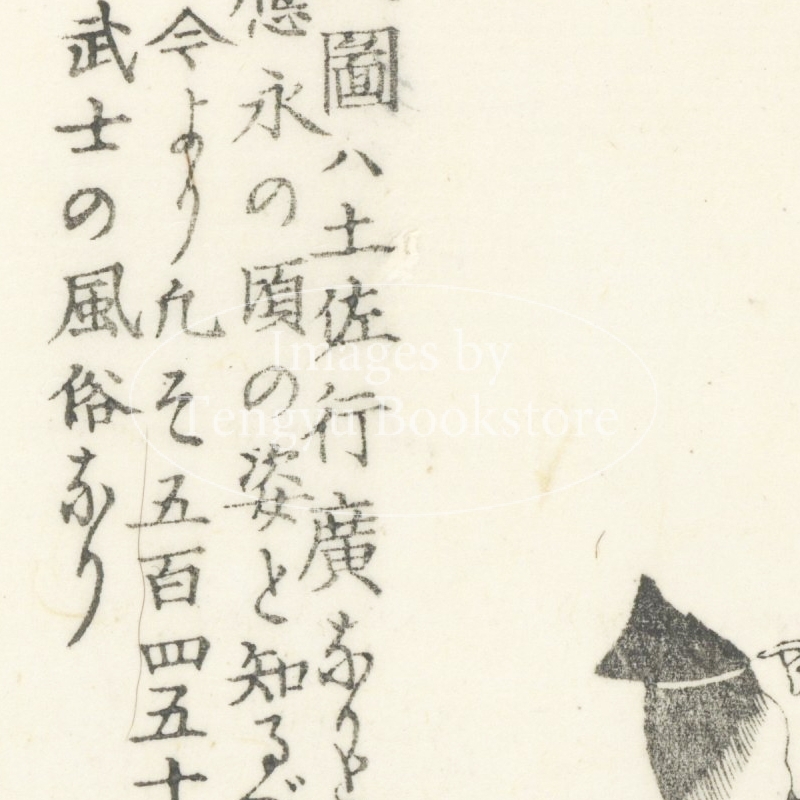 圖ハ土佐行廣なりと
應永の頃の姿と知るべ
今より凡そ五百四五十
武士の風俗なり
Images by
Tengyu Bookstore